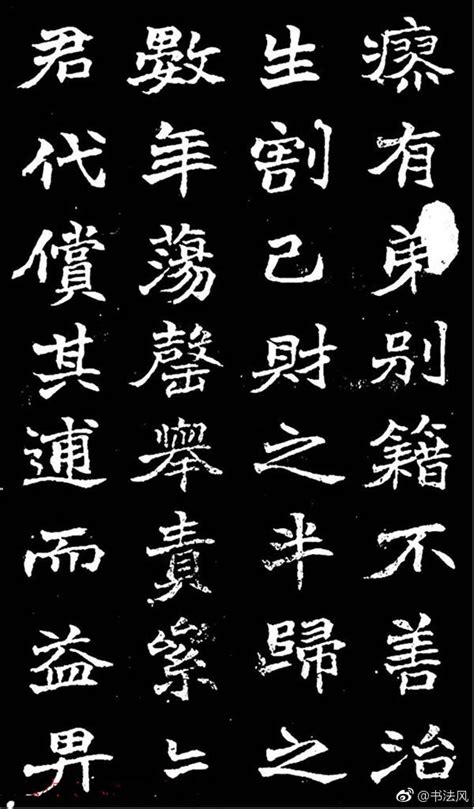 瘵有弟別籍不善治
生割己財之半歸之
數年蕩罄舉責絫〻
君代償其逋而益畀
@书法风